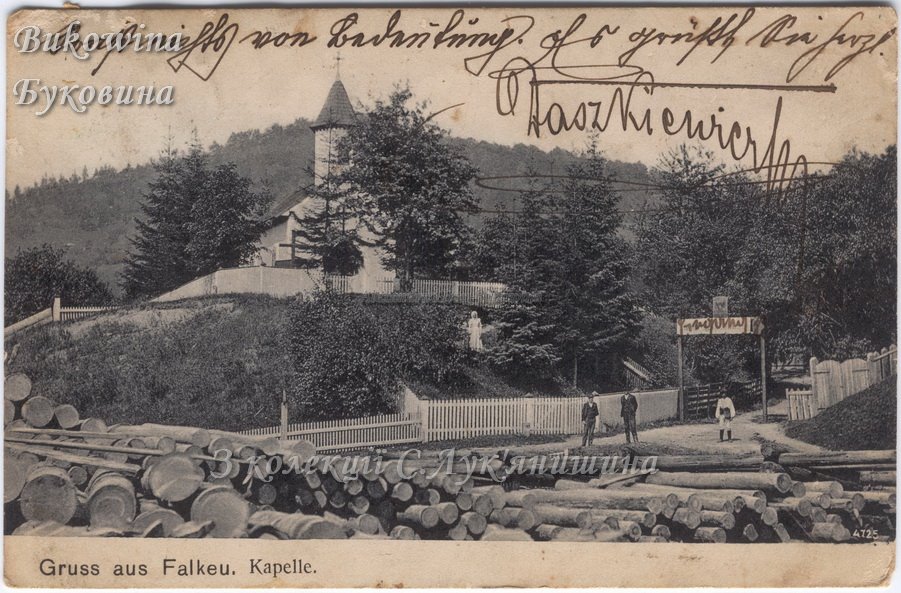 Bukowina
nichts von Bedeutung. Es grüßt Sie herzl.
Буковина
Daszkiewicz
З колекції С.Лук'янишина
4725
Gruss aus Falkeu. Kapelle.